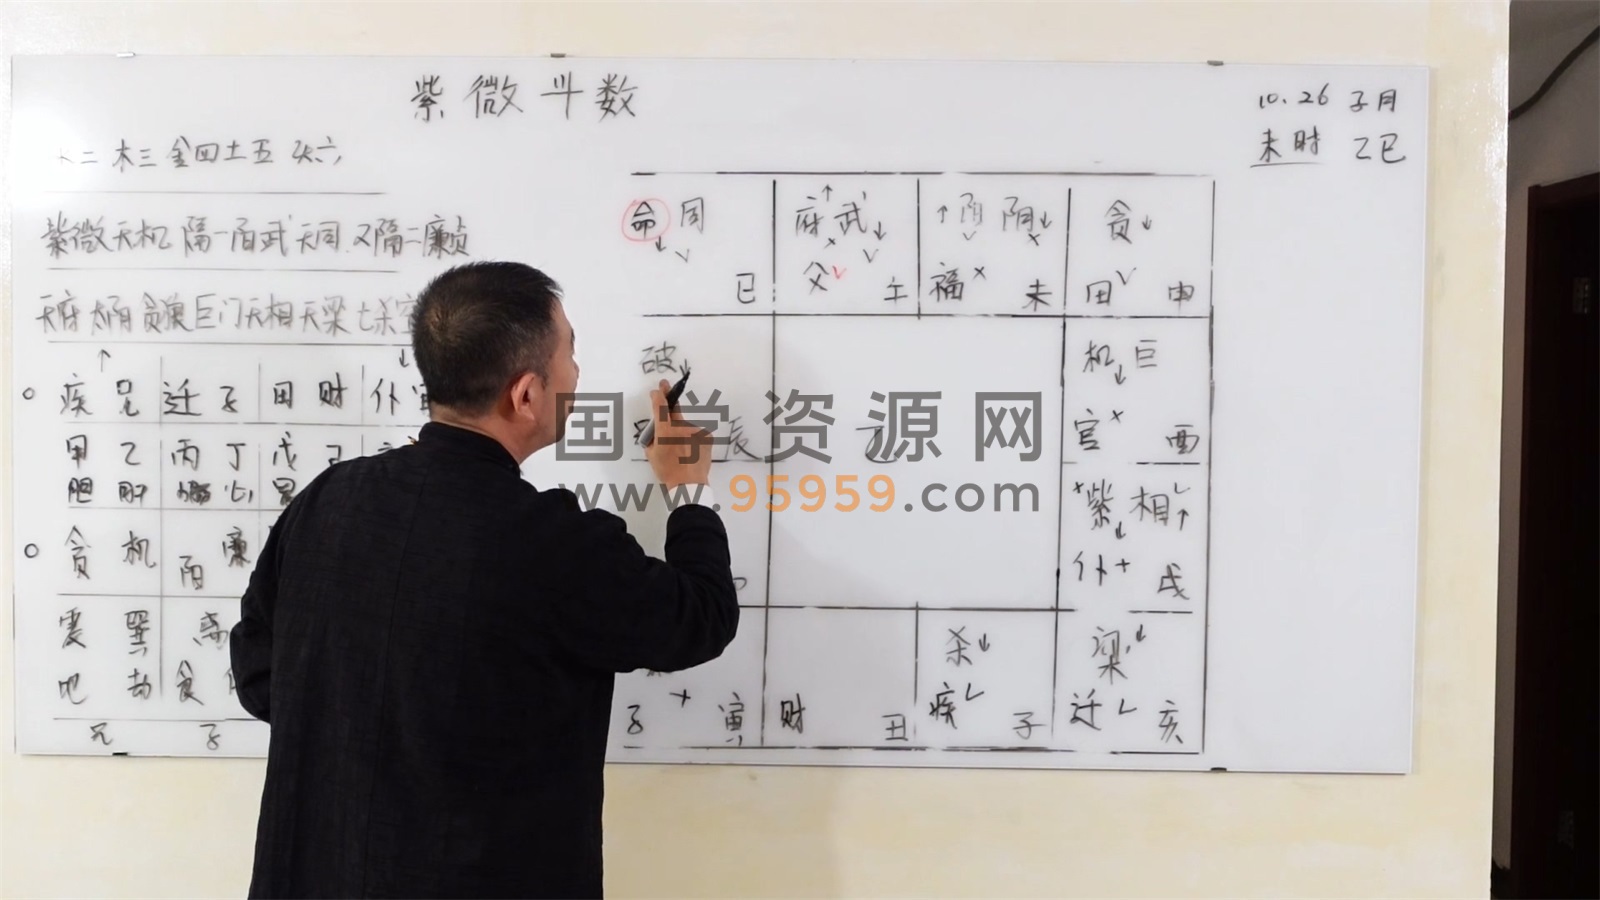 紫微斗数
10.26 子月
未时 乙巳
二 木三 金四 土五 火六
紫微天机 隔一阳武 天同 又隔二廉贞
天府 太阴 贪狼 巨门 天相 天梁 七杀
↑ ↓
疾 兄 迁 子 田 财 仆
甲 乙 丙 丁 戊 己
胆 肝 小肠 心 胃
贪 机 阳 廉
震 巽 离
地 劫 食
兄 子
命 同
巳
府 武
父 午
阳 阴
福 未
贪
田 申
破
辰
机 巨
官 酉
紫 相
仆 戌
子 寅
财 丑
杀
疾 子
梁
迁 亥
国学资源网
www.95959.com